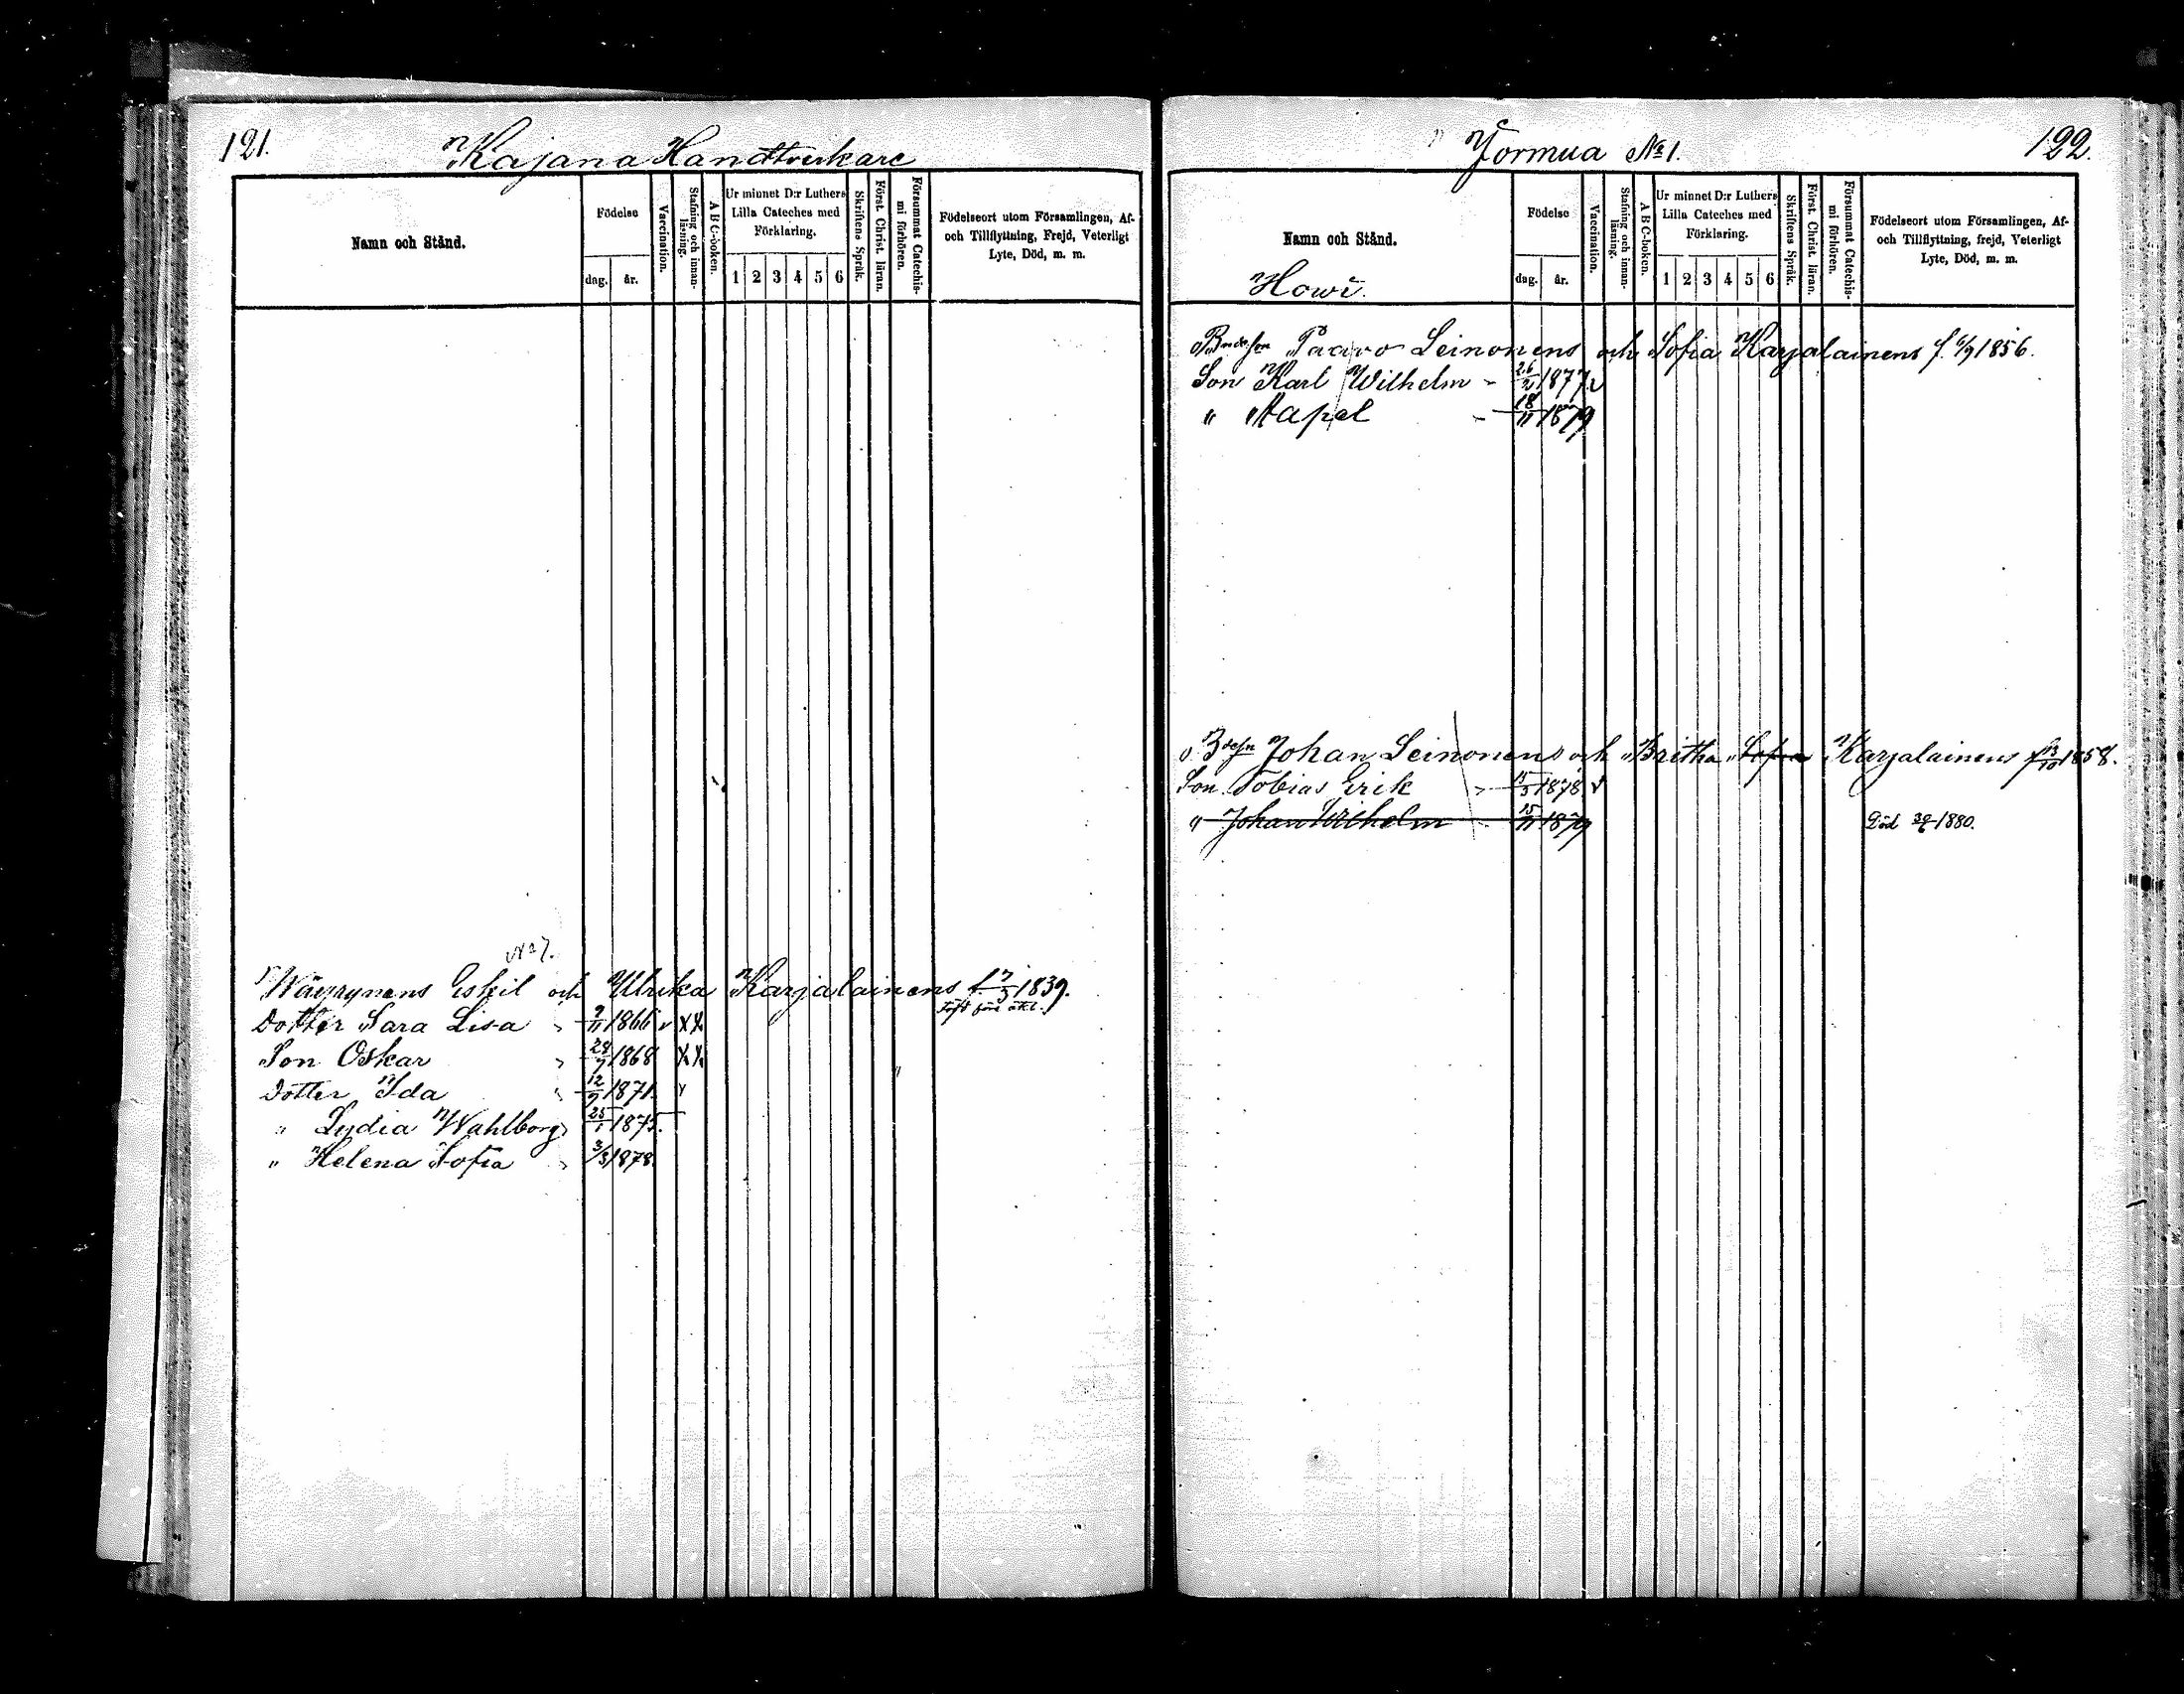 121.
Kajana Handtverkare
Namn och Stånd.
Födelse
dag.
år.
Vaccination.
Stafning och innan-
läsning.
A B C-boken.
Ur minnet D:r Luthers
Lilla Cateches med
Förklaring.
1 2 3 4 5 6
Skriftens Språk.
Först. Christ. läran.
Försummat Catechis-
mi förhören.
Födelseort utom Församlingen, Af-
och Tillflyttning, Frejd, Veterligt
Lyte, Död, m. m.
No 7.
Wäyrynens Eskil och Ulrika Karjalainens f. 7/5 1839.
Dotter Sara Lisa " 9/11 1866 v XX
Son Oskar " 28/7 1868 XX
Dotter Ida " 12/7 1871. v
" Lydia Wahlborg " 25/1 1875.
" Helena Sofia " 3/3 1878
Jormua No 1.
122.
Namn och Stånd.
Howi.
Födelse
dag.
år.
Vaccination.
Stafning och innan-
läsning.
A B C-boken.
Ur minnet D:r Luthers
Lilla Cateches med
Förklaring.
1 2 3 4 5 6
Skriftens Språk.
Först. Christ. läran.
Försummat Catechis-
mi förhören.
Födelseort utom Församlingen, Af-
och Tillflyttning, frejd, Veterligt
Lyte, Död, m. m.
Paavo Leinonens och Sofia Karjalainens f. 6/9 1856.
Son Karl Wilhelm - 1877. v
" Aapel - 18/11 1879
Johan Leinonens och Britha Sofia Karjalainens f 13/10 1858.
Son Tobias Erik " 15/5 1878 v
" Johan Wilhelm 15/11 1879 Död 1880.